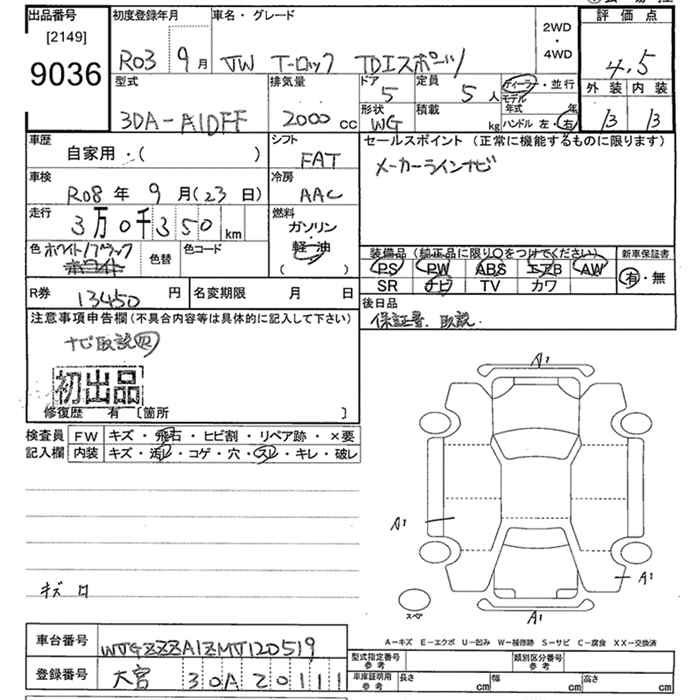 出品番号
[2149]
9036
初度登録年月
R03 9月
車名・グレード
VW T-ロック TDIスポーツ
2WD
・
4WD
評価点
4.5
外装 内装
B B
型式
3DA-A1DFF
排気量
2000 cc
ドア
5
定員
5人
形状
WG
積載
kg
ディーラー・並行
モデル年式 年
ハンドル 左・右
車歴
自家用・( )
シフト
FAT
車検
R08年 9月(23日)
冷房
AAC
走行
3万0千350 km
燃料
ガソリン
軽油
( )
色 ホワイト/ブラック
ホワイト
色替
色コード
セールスポイント (正常に機能するものに限ります)
メーカーラインナビ
装備品 (純正品に限り○をつけてください)
PS PW ABS エアB AW
SR ナビ TV カワ
新車保証書
有・無
R券
13450 円
名変期限 月 日
後日品
保証書、取説.
注意事項申告欄(不具合内容等は具体的に記入して下さい)
ナビ取説
初出品
修復歴 有 〔箇所 〕
検査員
記入欄
FW キズ・飛石・ヒビ割・リペア跡・×要
内装 キズ・汚レ・コゲ・穴・スレ・キレ・破レ
A1
A1
A1
A1
スペア
A-キズ E-エクボ U-凹み W-補修跡 S-サビ C-腐食 XX-交換済
車台番号
WVGZZZA1ZMV120519
登録番号
大宮 30A 20111
型式指定番号
参考
類別区分番号
参考
車庫証明用
参考
長さ cm
幅 cm
高さ cm